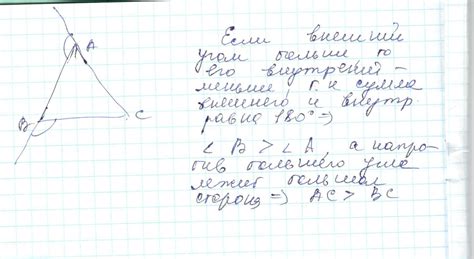 A
B
C
Если внешний
угол больше то
его внутрений -
меньше, т.к сумма
внешнего и внутр.
равна 180° =>
∠ B > ∠ A, а напро-
тив большего угла
лежит большая
сторона => AC > BC